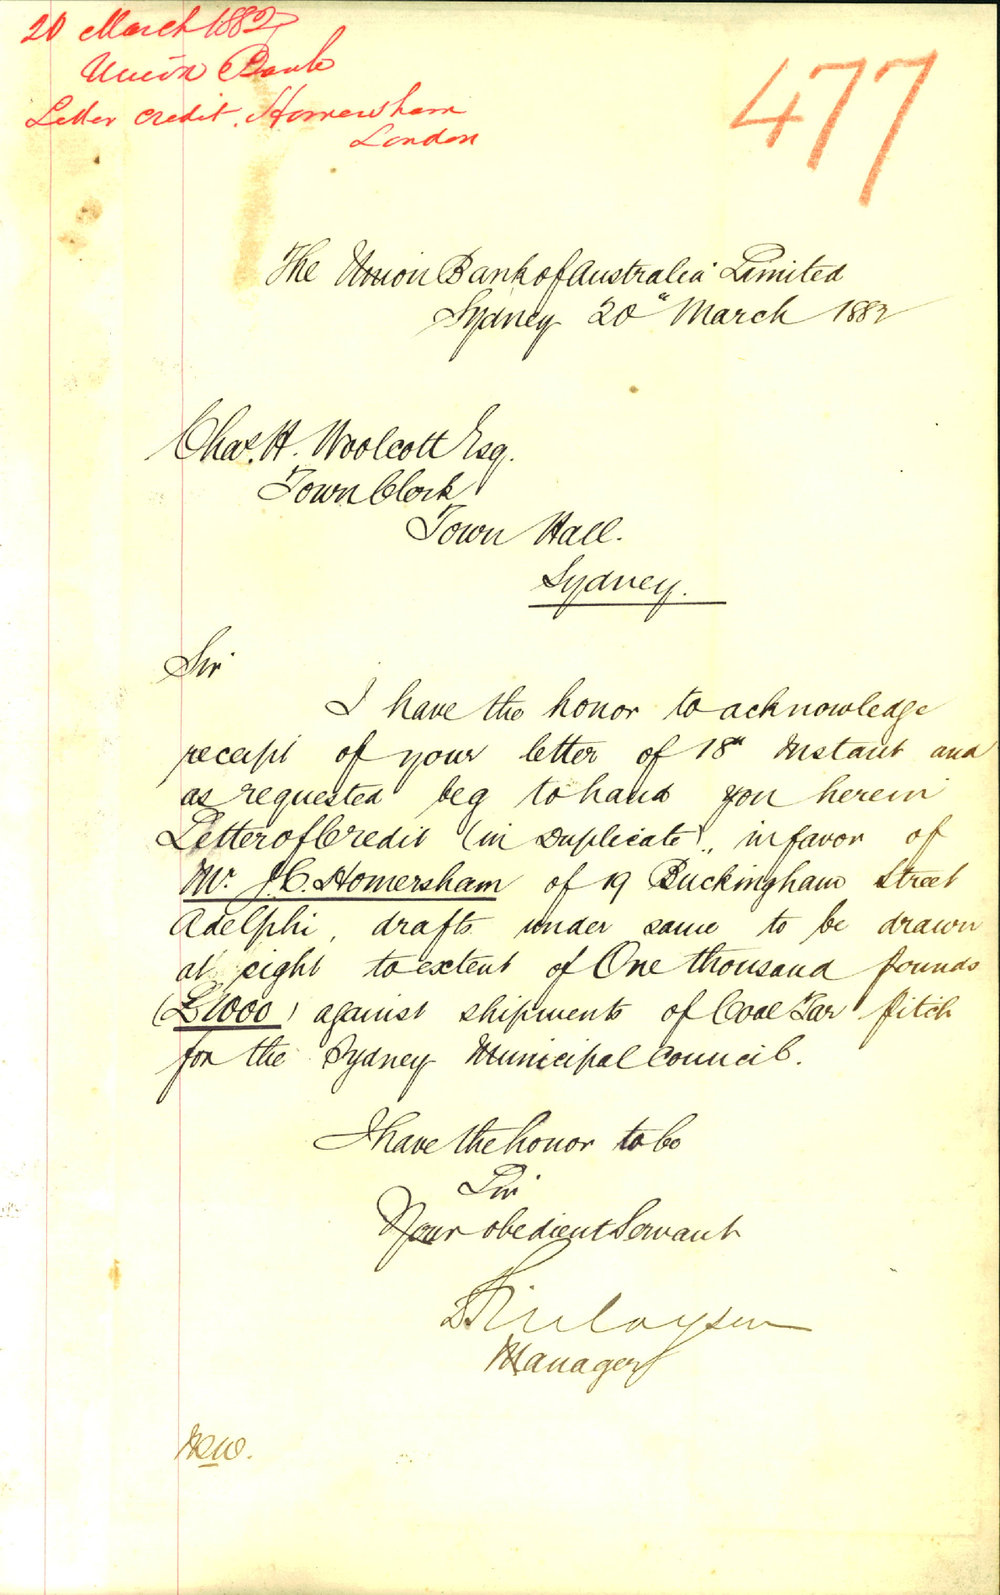 20 March 1882
Union Bank
Letter credit. Homersham
London
477
The Union Bank of Australia Limited
Sydney 20" March 1882
Chas. H. Woolcott Esq.
Town Clerk
Town Hall.
Sydney.
Sir
I have the honor to acknowledge
receipt of your letter of 18th Instant and
as requested beg to hand you herein
Letter of Credit (in Duplicate), in favor of
Mr. J.C. Homersham of 19 Buckingham Street
Adelphi, drafts under same to be drawn
at sight to extent of One thousand pounds
(£1000) against shipments of Coal Tar pitch
for the Sydney Municipal Council.
I have the honor to be
Sir
Your obedient Servant
Finlayson
Manager